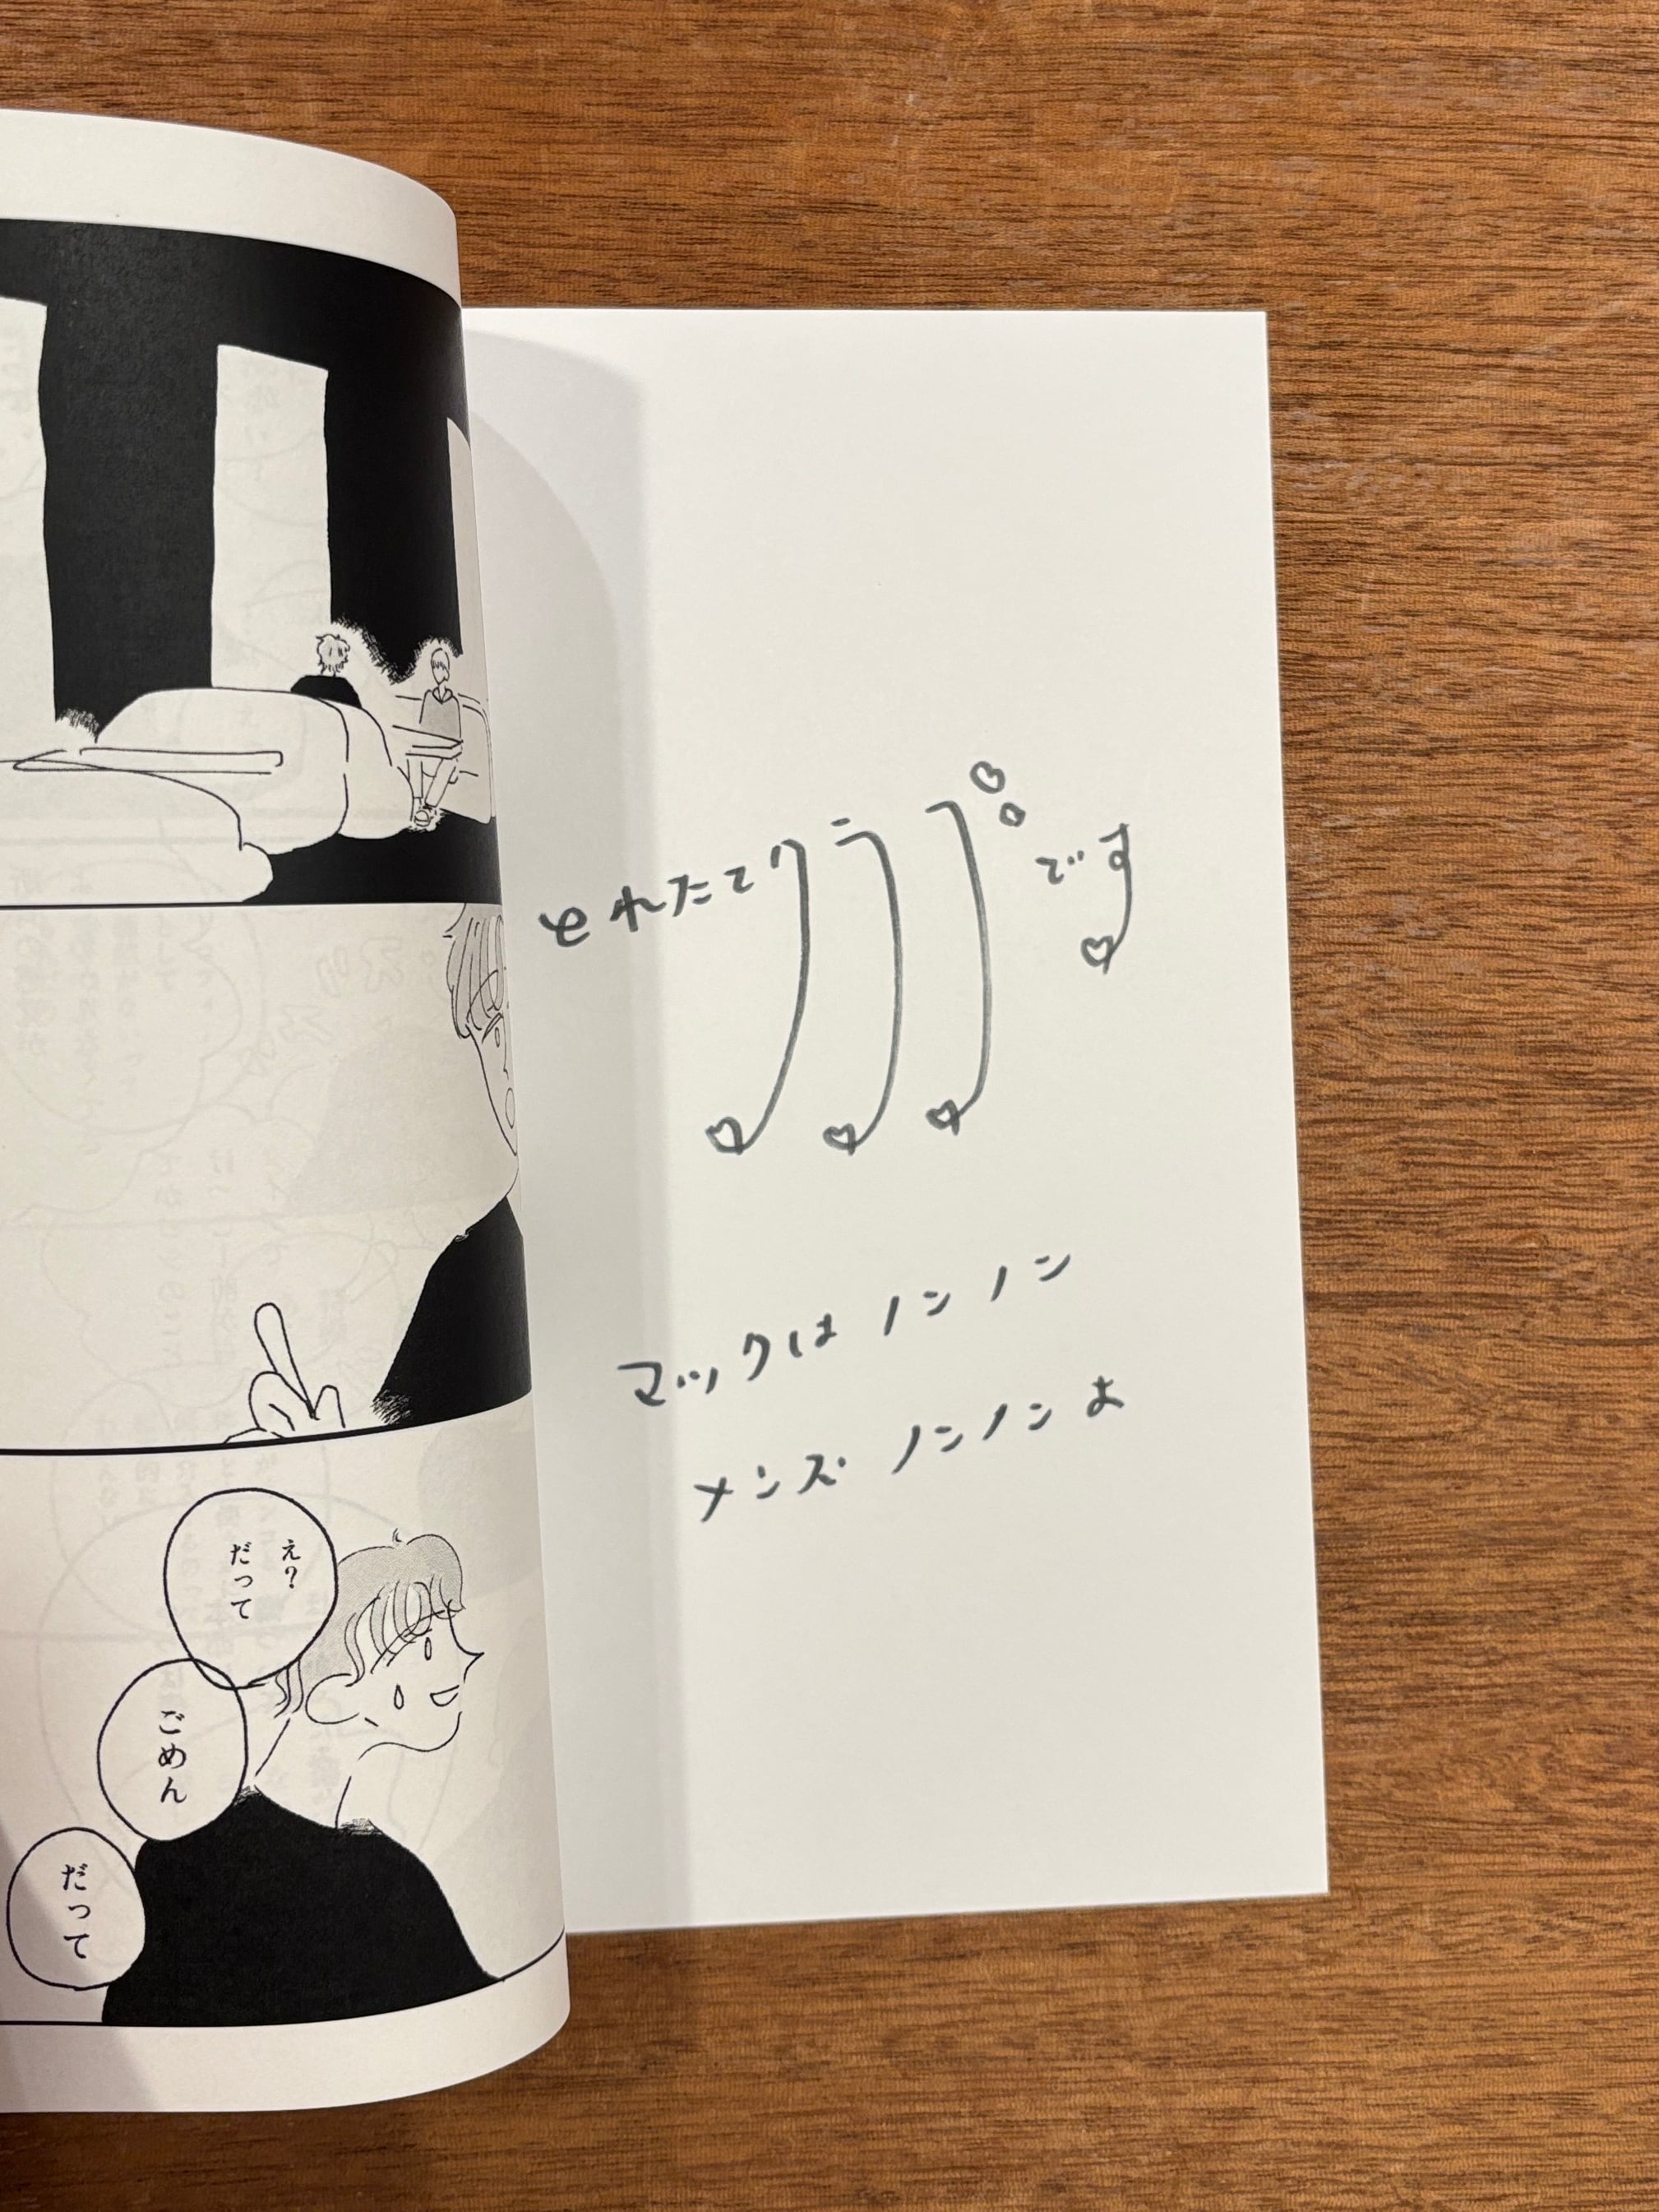 とれたてクラブです
マックは ノンノン
メンズ ノンノンよ
え?
だって
ごめん
だって